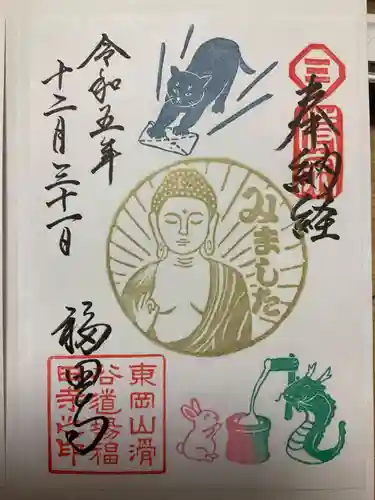 奉納経
令和五年
十二月三十一日
みました
福田寺
東岡山滑
谷道場福
田寺常印